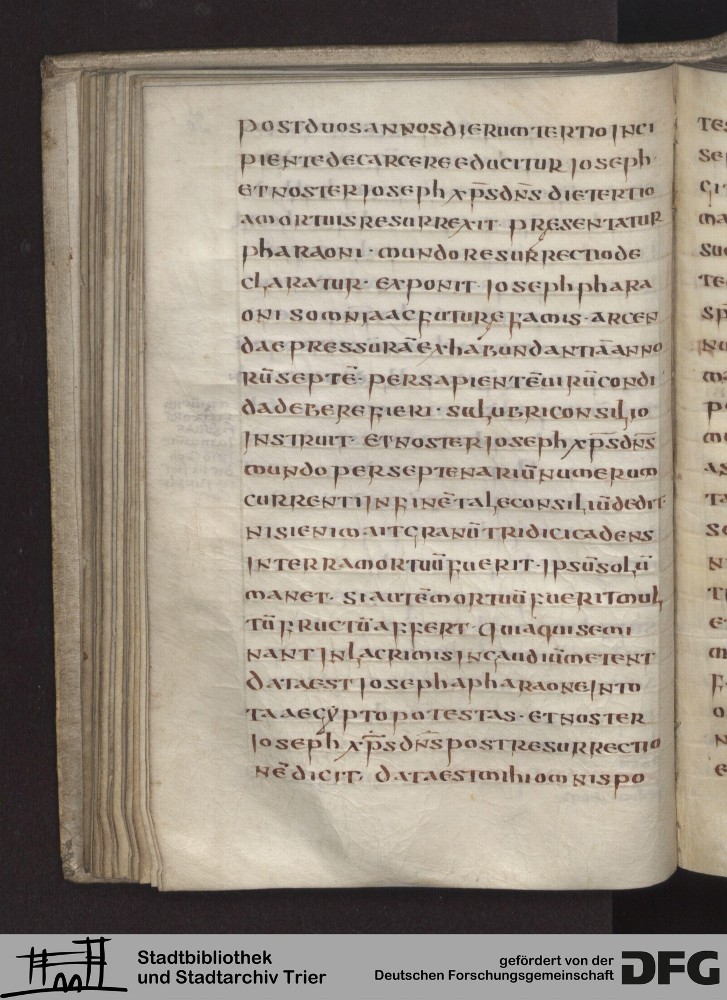 postduosannosdierumtertio inci
pientedecarcereeducitur ioseph·
etnosterioseph xp̄s dn̄s· dietertio
amortuisresurrexit· presentatur
pharaoni· mundoresurrectiode
claratur· exponit· iosephphara
oni somniaacfuture famis· arcen
dae pressurāexhabundantiāanno
rūseptē· persapientēuirūcondi
dadeberefieri· salubriconsilio
instruit· etnosterioseph xp̄sdn̄s
mundoperseptenariūnumerum
currentiinfinētaleconsiliūdedit·
nisienimaitgranūtridicicadens
interramortuūfuerit· ipsūsolū
manet· siautēmortuūfueritmul
tūfructūaffert· quiaquisemi
nantinlacrimisingaudiūmetent
dataestiosephapharaoneinto
taaegẏptopotestas· etnoster
ioseph xp̄sdn̄spostresurrectio
nē dicit· dataestmihiomnispo
tes
Stadtbibliothek
und Stadtarchiv Trier
gefördert von der
Deutschen Forschungsgemeinschaft
DFG